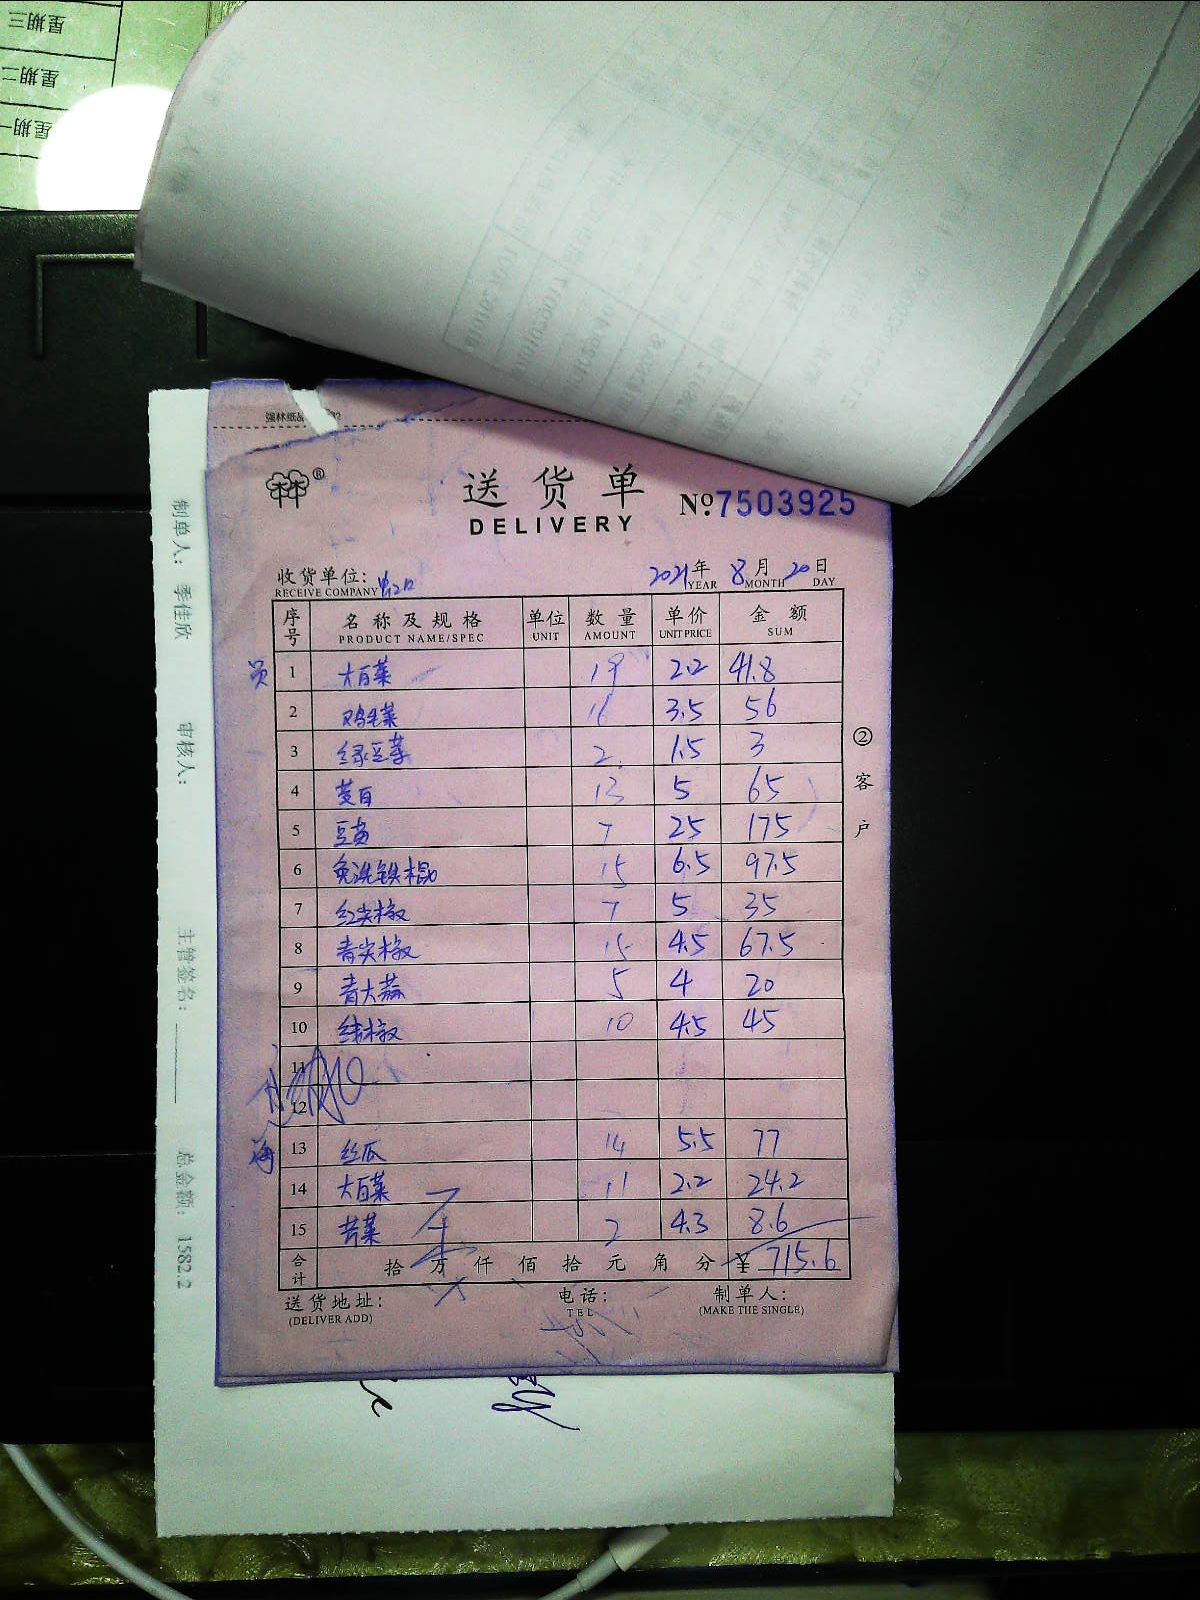 星期三
星期二
星期一
制单人: 季佳欣 审核人: 主管签名: 总金额: 1582.2
强林纸品
®
送货单 №7503925
DELIVERY
收货单位: 2021年 8月 20日
RECEIVE COMPANY YEAR MONTH DAY
序号 名称及规格 单位 数量 单价 金额
PRODUCT NAME/SPEC UNIT AMOUNT UNIT PRICE SUM
1 大白菜 19 2.2 41.8
2 鸡毛菜 16 3.5 56
3 绿豆芽 2 1.5 3
4 茭白 13 5 65
5 豆苗 7 25 175
6 免洗铁棍 15 6.5 97.5
7 红尖椒 7 5 35
8 青尖椒 15 4.5 67.5
9 青大蒜 5 4 20
10 线椒 10 4.5 45
11
12
13 丝瓜 14 5.5 77
14 大白菜 11 2.2 24.2
15 苦菜 2 4.3 8.6
合计 拾 万 仟 佰 拾 元 角 分 ¥ 715.6
送货地址: 电话: 制单人:
(DELIVER ADD) TEL (MAKE THE SINGLE)
②客户